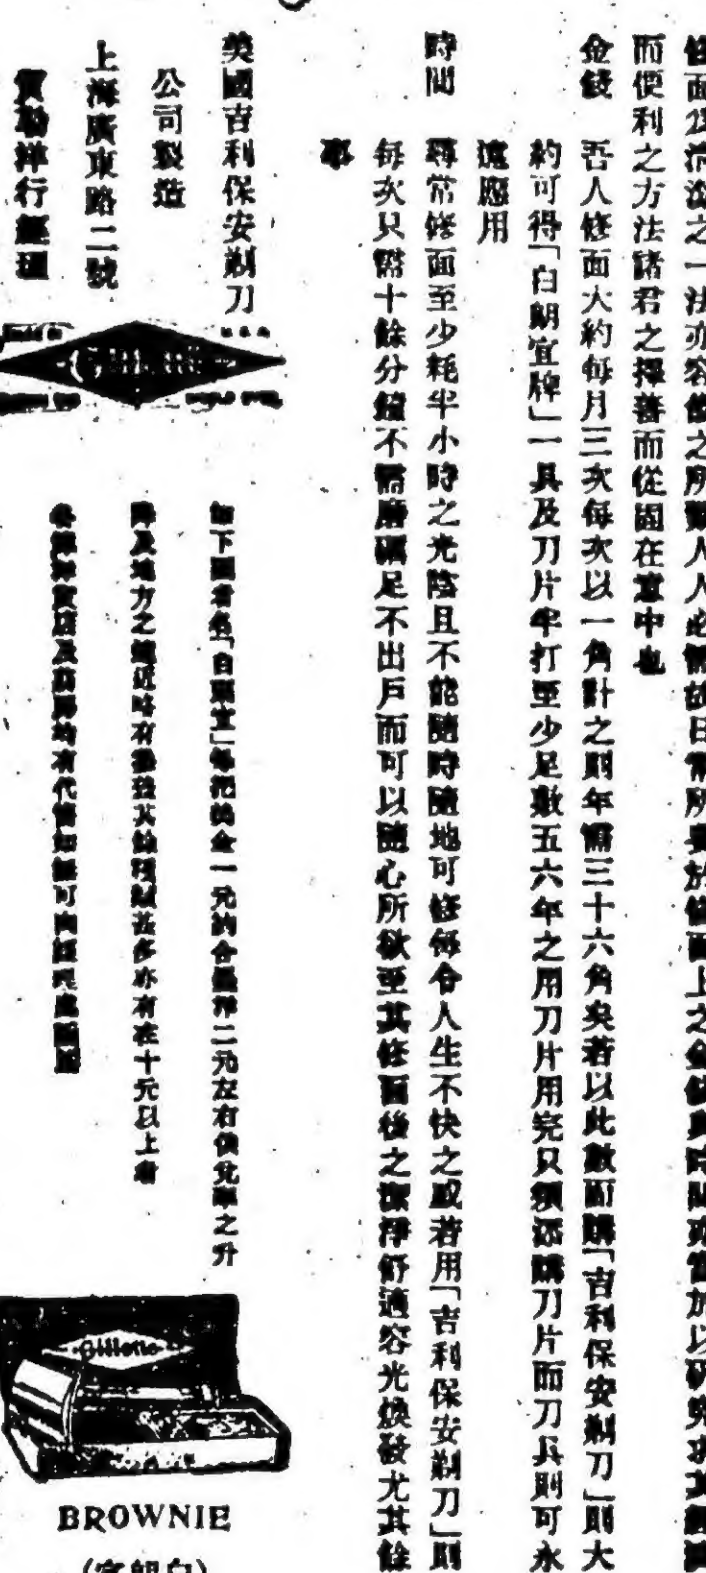 修面為清潔之一法亦容儀之所繫人人必需故日常所費於修面上之金錢與時間亟當加以研究求其經濟
而便利之方法諸君之擇善而從固在意中也
金錢 吾人修面大約每月三次每次以一角計之則年需三十六角矣若以此數而購「吉利保安剃刀」則大
約可得「白朗宜牌」一具及刀片半打至少足敷五六年之用刀片用完只須添購刀片而刀具則可永
遠應用
時間 尋常修面至少耗半小時之光陰且不能隨時隨地可修每令人生不快之感若用「吉利保安剃刀」則
每次只需十餘分鐘不需磨礪足不出戶而可以隨心所欲至其修面後之潔淨舒適容光煥發尤其餘
事
美國吉利保安剃刀
公司製造
上海廣東路二號
洋行經理
Gillette
如下圖者名「白朗宜」每把美金一元約合洋二元左右但兌率之升
降及地方之遠近略有其餘種類甚多亦有在十元以上者
各洋貨店及藥房均有代售如無可向經理處
Gillette
BROWNIE
(宜朗白)